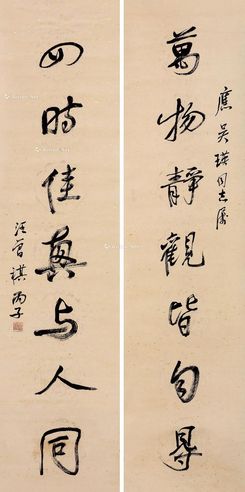 應吴瑛同志屬
萬物靜觀皆自㝵
四時佳興与人同
汪曾祺 丙子